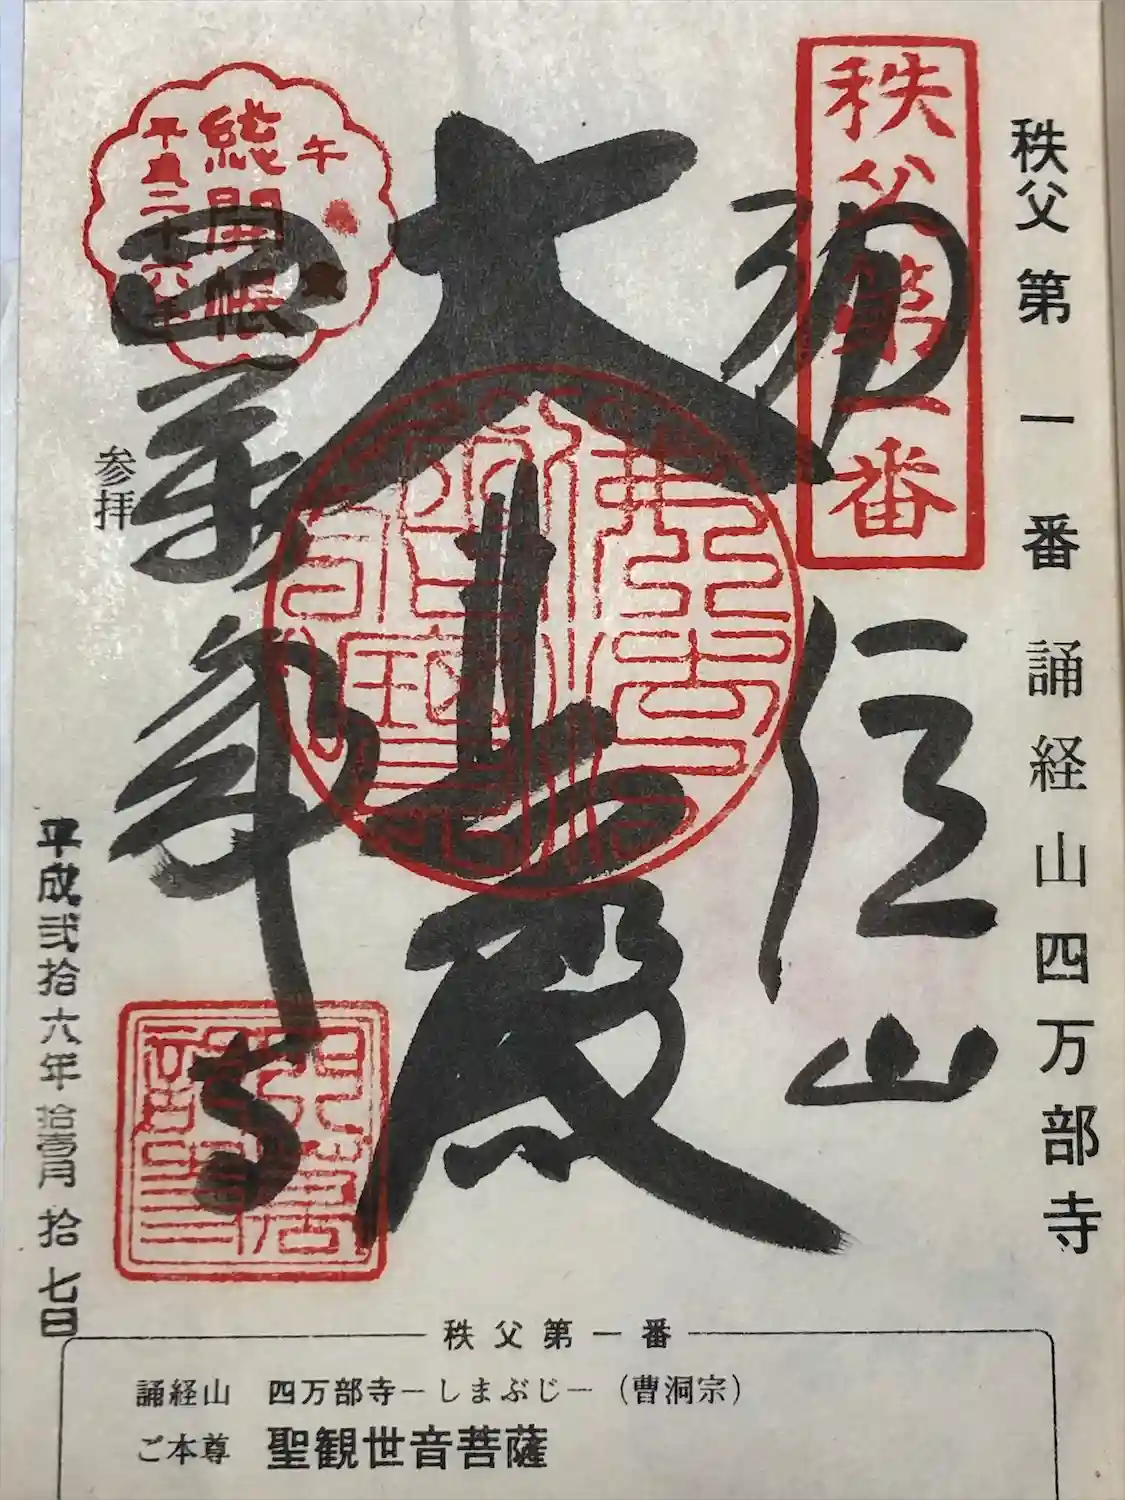 秩父第一番 誦経山四万部寺
秩父第一番
誦経山
大悲殿
四萬部寺
午
総開帳
平成二十六年
参拝
平成弐拾六年拾壱月拾七日
秩父第一番
誦経山 四万部寺―しまぶじ―(曹洞宗)
ご本尊 聖観世音菩薩